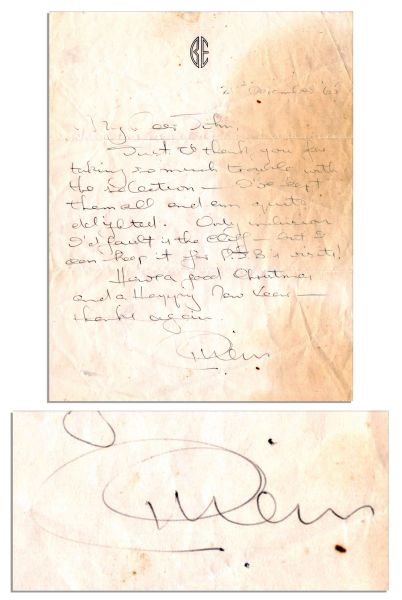 BE
December
My dear John,
Just to thank you for
taking so much trouble with
the selection – I've kept
them all and am quite
delighted. Only inclusion
I'd fault is the Cliff – but I
can keep it for visits!
Have a good Christmas
and a Happy New Year –
thanks again.
Brian
Brian